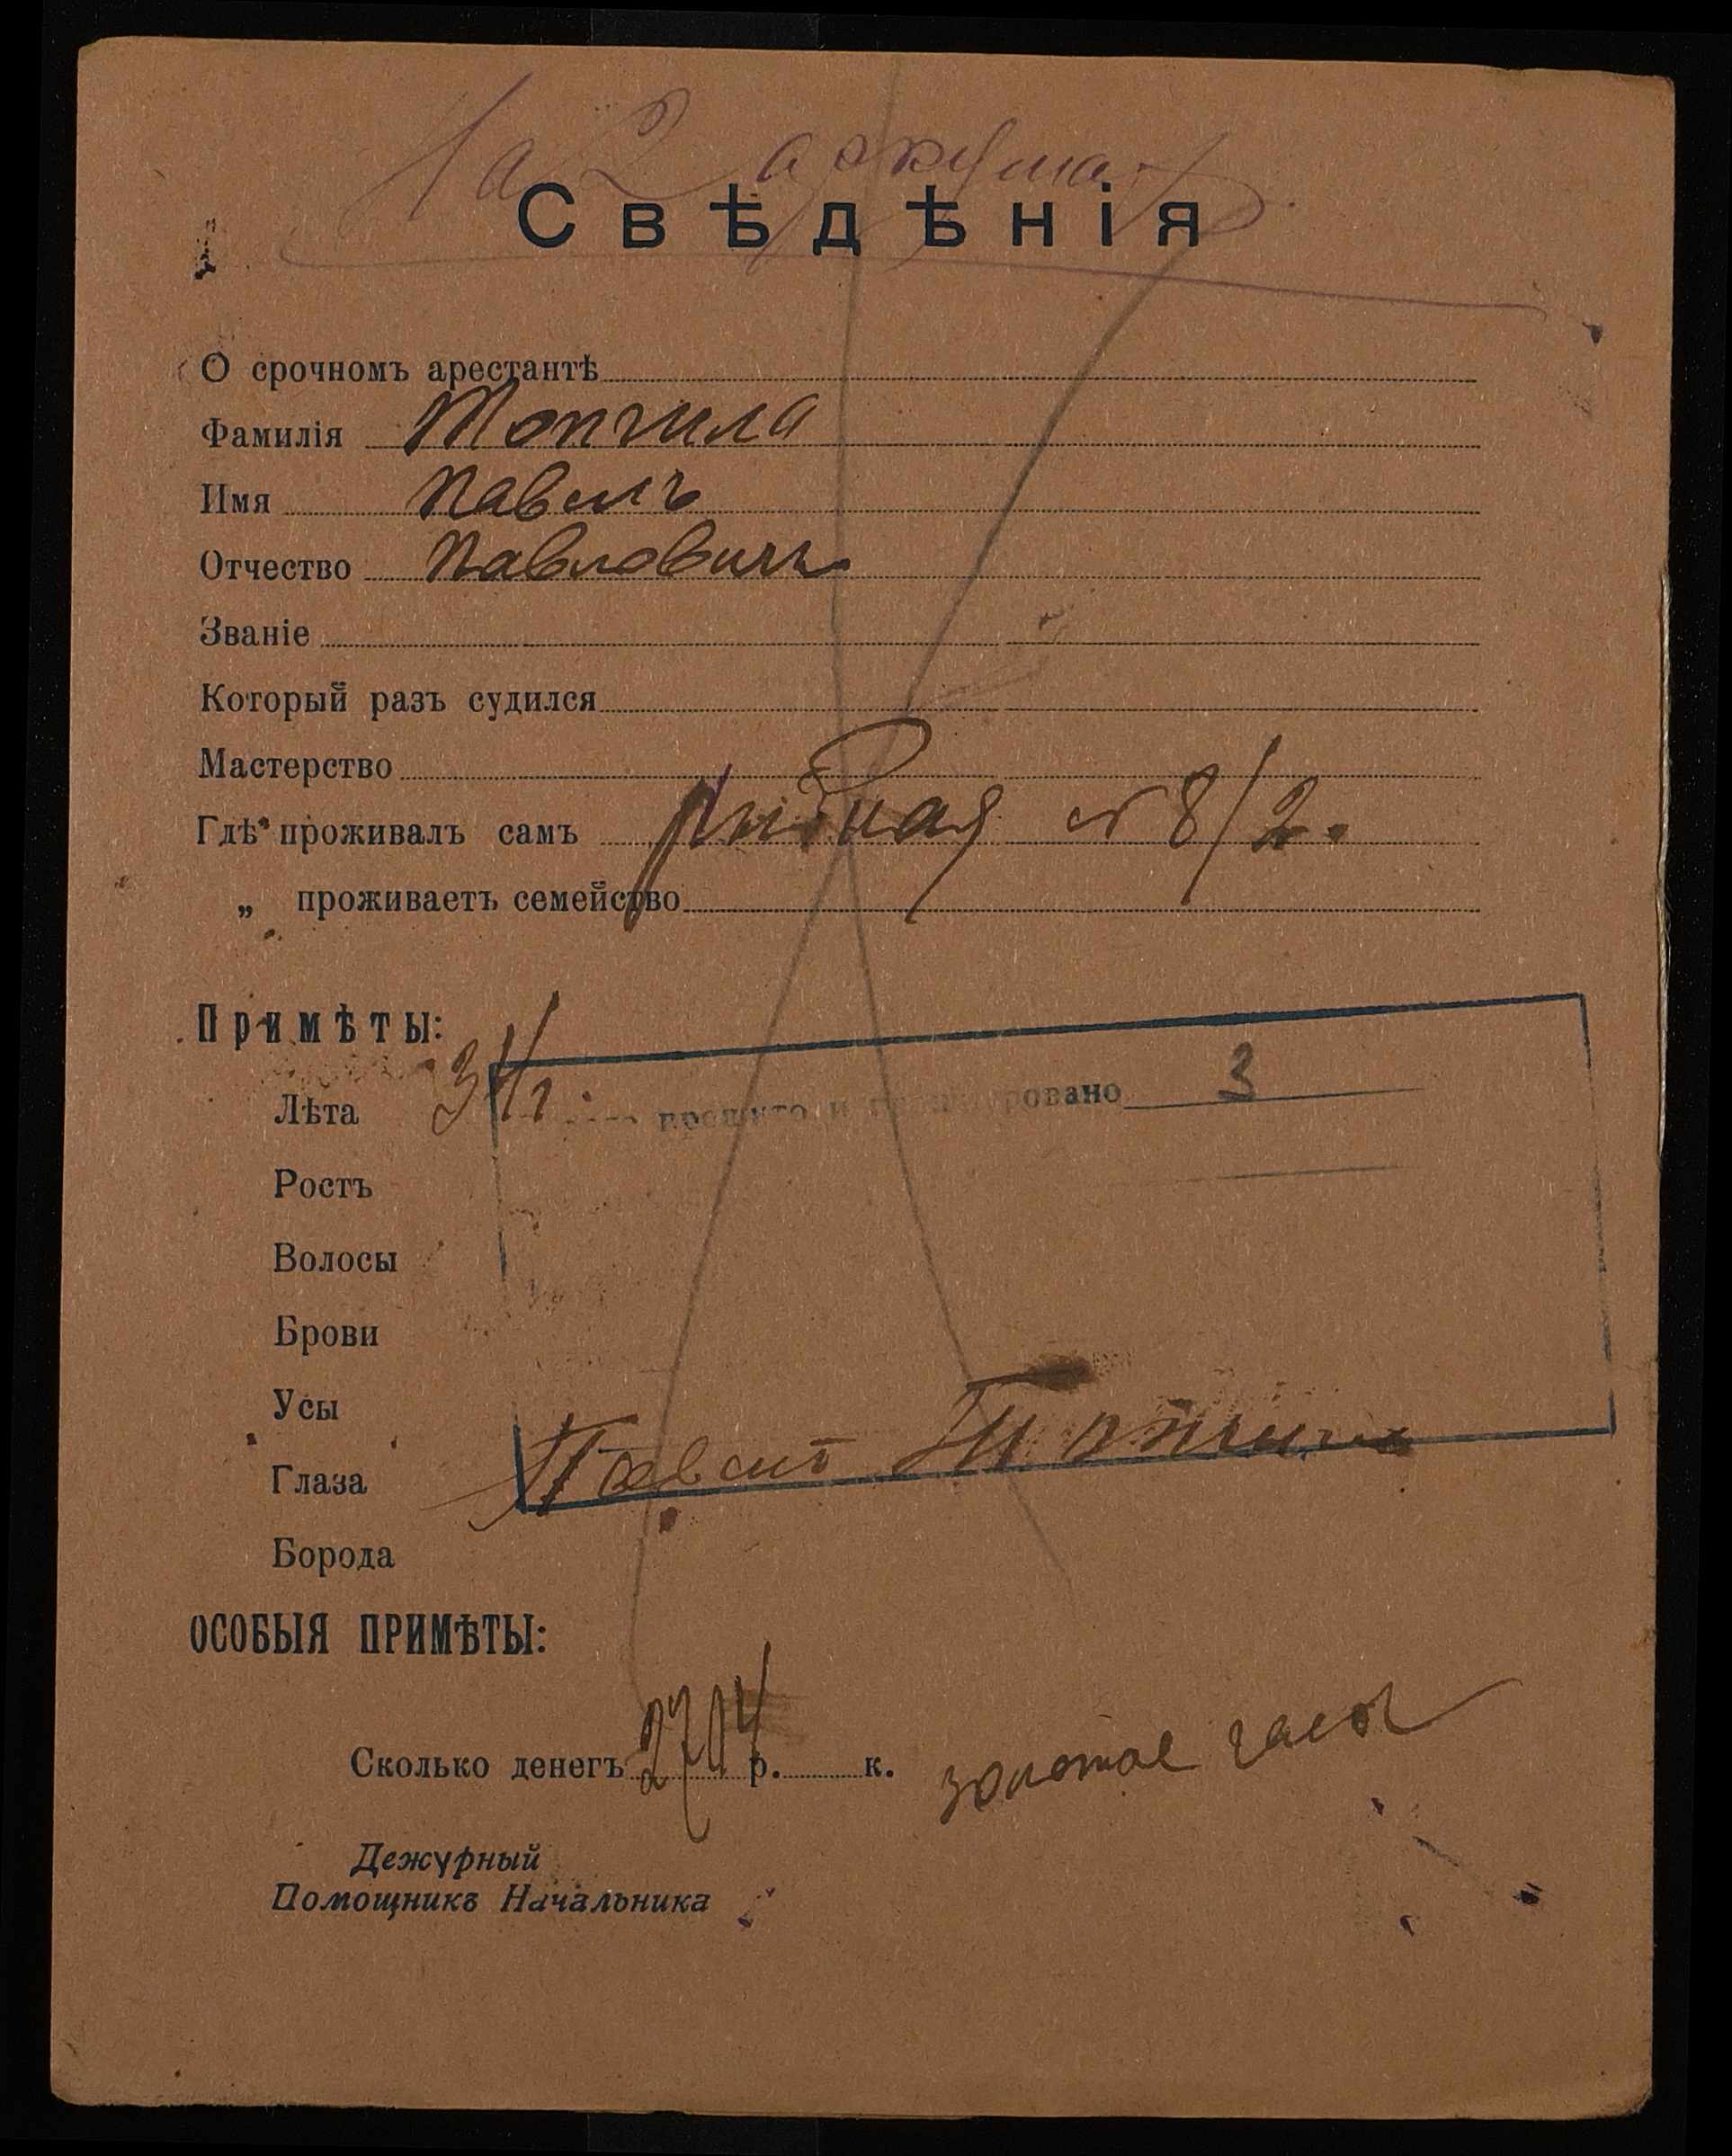 На 2 аркушах
Свѣдѣнія
О срочномъ арестантѣ
Фамилія Топчила
Имя Павелъ
Отчество Павловичъ
Званіе
Который разъ судился
Мастерство
Гдѣ проживалъ самъ Рыбная № 8/2.
„ проживаетъ семейство
Примѣты:
Лѣта 34 г.
прошито и пронумеровано 3
Ростъ
Волосы
Брови
Усы
Глаза Павелъ
Борода
ОСОБЫЯ ПРИМѢТЫ:
Сколько денегъ 2704 р. к. золотые часы
Дежурный
Помощникъ Начальника